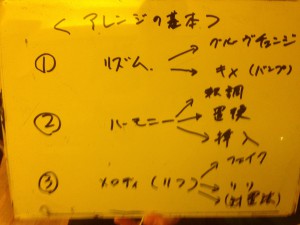 <アレンジの基本>
グルーヴチェンジ
① リズム
キメ(バンプ)
転調
② ハーモニー 置換
挿入
フェイク
③ メロディ(リフ) リリ
(対置法)